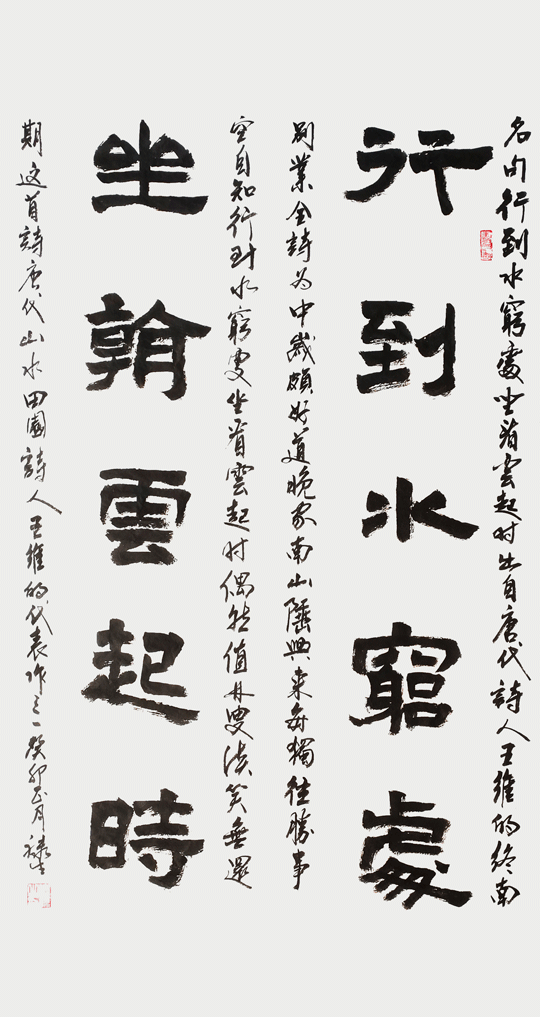 名句行到水窮處坐看雲起时出自唐代詩人王維的終南
行到水窮處
别業全詩为中歲頗好道晚家南山陲興来每獨往勝事
空自知行到水窮處坐看雲起时偶然值林叟谈笑無還
坐看雲起時
期这首詩唐代山水田園詩人王維的代表作之一癸卯正月